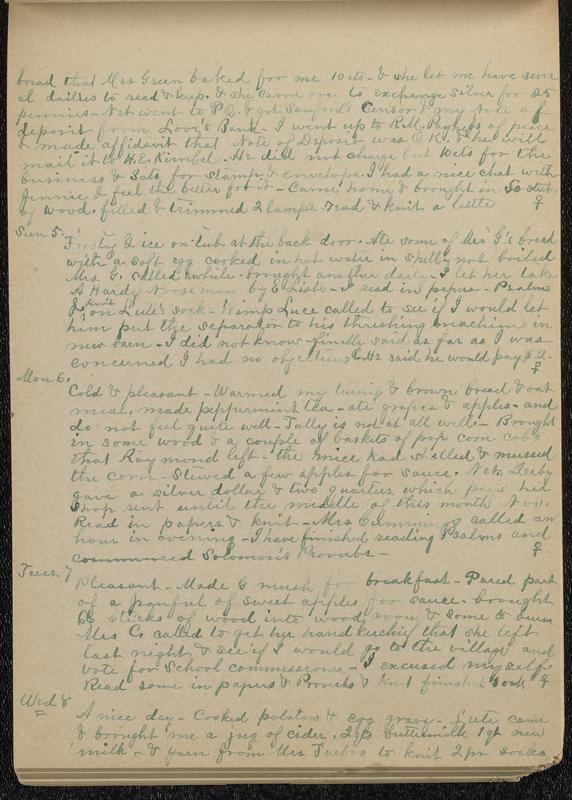 bread that Mrs Green baked for me 10 cts - & she let me have sever
al dailies to read & keep. & she came over to exchange silver for 25
pennies - Net went to P.O. & got Sanford's Censor & my note of
deposit from Lovi's Bank - I went up to R.M. of peace
& made affidavit that Note of Deposit was O.K. & he will
mail it to H.E. Kimbel. He did not charge but 10 cts for the
business & 3 cts for stamp & envelope. I had a nice chat with
Jennie & feel the better for it - Came home & brought in 30 sticks
of wood. filled & trimmed 2 lamps read & knit a little ♀
Sun 5. Frosty & ice on tub at the back door. Ate some of Mrs G's bread
with a soft egg cooked in hot water in shell, not boiled
Mrs G. called awhile - brought another daily - I let her take
A Hardy Norseman by E. - I read in papers - Psalms
& knit on Lute's sock - Wimp Luce called to see if I would let
him put the separator to his threshing machine in
new barn - I did not know - finally said as far as I was
concerned I had no objections - He said he would pay $2.
♀
Mon 6.
Cold & pleasant - Warmed my turnip & brown bread & oat
meal, made peppermint tea - ate grapes & apples - and
do not feel quite well - Tally is not at all well - Brought
in some wood & a couple of baskets of pop corn cobs
that Raymond left - the mice had shelled & mussed
the corn - Stewed a few apples for sauce. Derby
gave a silver dollar & two quarters which pays her
shop rent until the middle of this month Nov.
Read in papers & knit - Mrs Cummings called an
hour in evening - I have finished reading Psalms and
commenced Solomon's Proverbs - ♀
Tues 7 Pleasant - Made G mush for breakfast - Pared part
of a panful of sweet apples for sauce - brought
66 sticks of wood into wood room & some to burn
Mrs C. called to get her handkerchief that she left
last night & see if I would go to the village and
vote for School commissioner - I excused myself.
Read some in papers & Proverbs & knit finished sock ♀
Wed 8
A nice day - Cooked potatoes & egg gravy - Lute came
& brought me a jug of cider, 2 qts buttermilk 1 qt new
milk - & yarn from Mrs to knit 2 pr socks